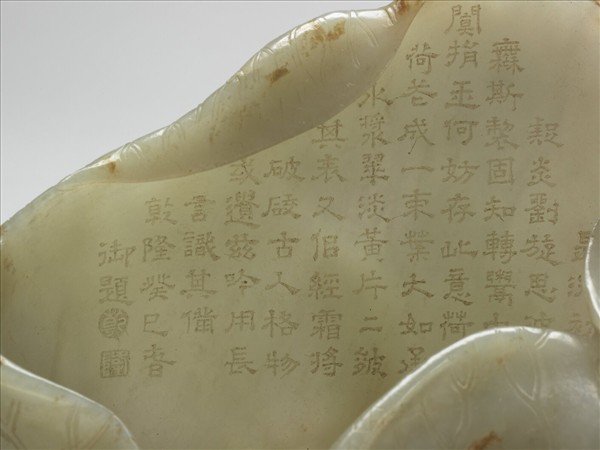 炎劉旋思
斯製固知轉鬻
闐捐玉何妨存此意荷
荷成一束葉大如
水漿翠淡黃片二皴
其表又侶經霜將
破古人格物
或遺茲吟用長
言識其僃
乾隆癸巳春
御題